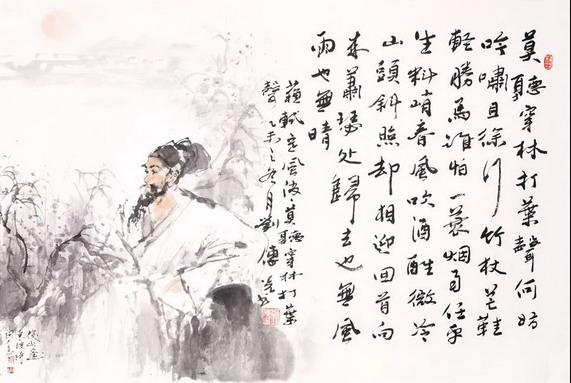 莫聽穿林打葉聲何妨
吟嘯且徐行竹杖芒鞋
輕勝馬誰怕一蓑烟雨任平
生料峭春風吹酒醒微冷
山頭斜照却相迎回首向
来蕭瑟处歸去也無風
雨也無晴
蘇軾定風波莫聽穿林打葉
聲乙未之九月劉傳